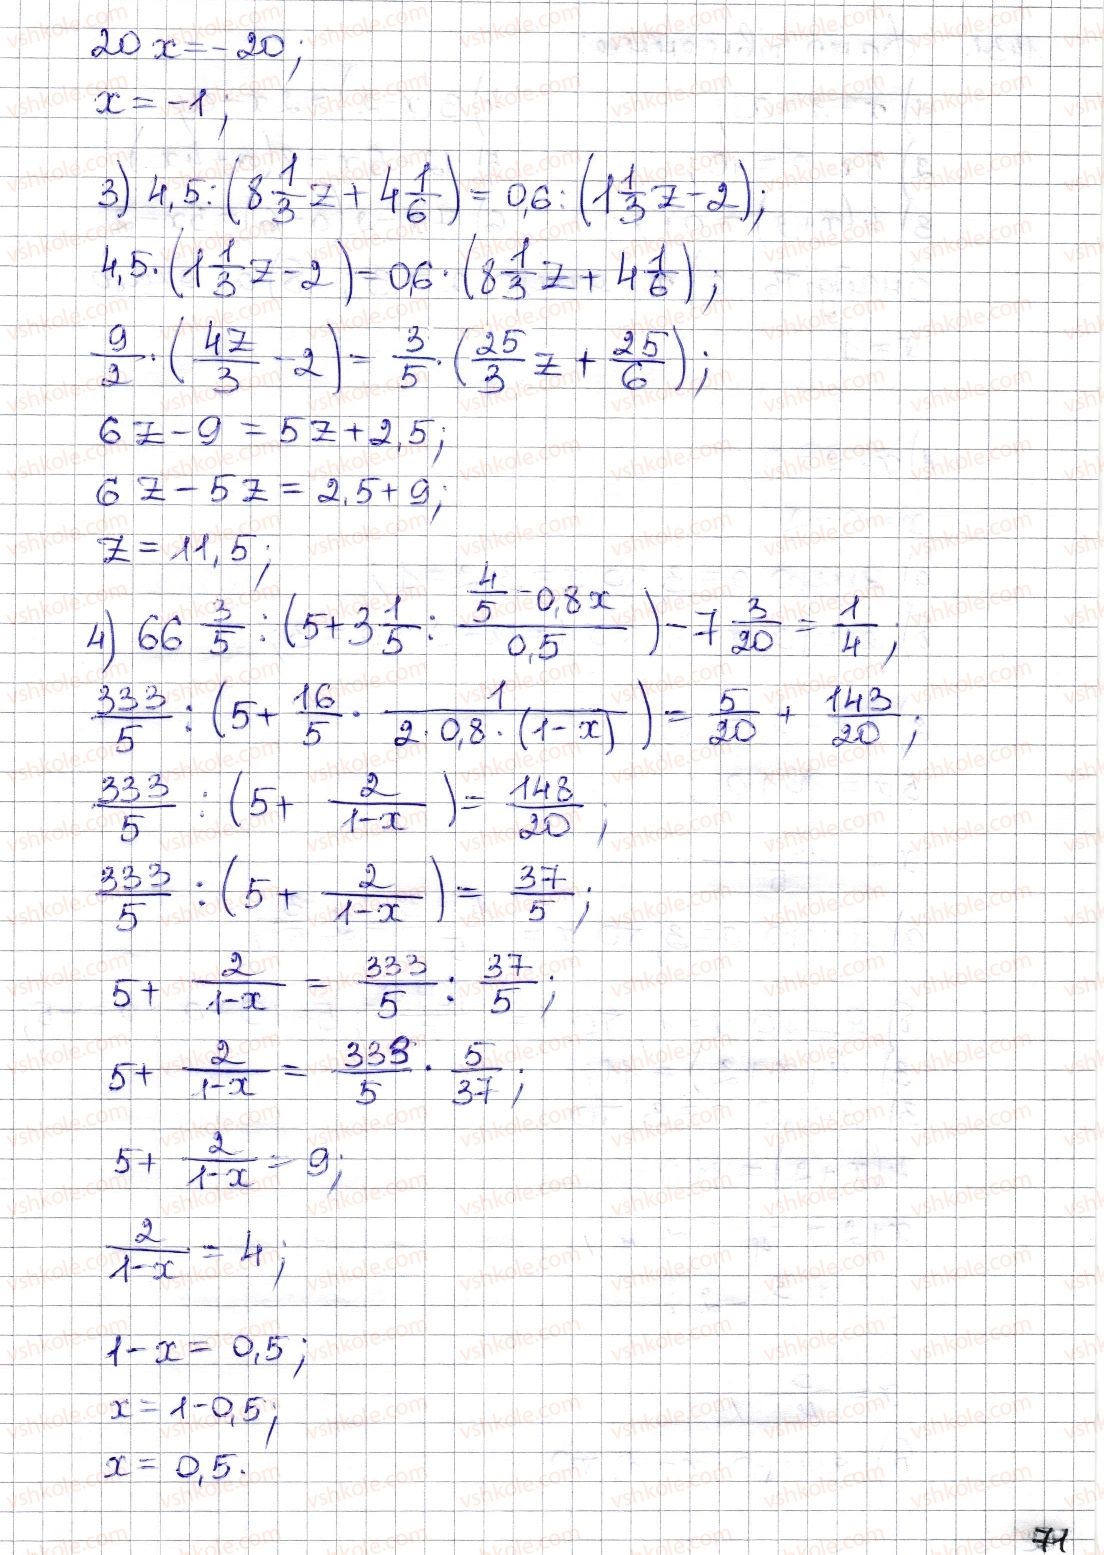 20x = -20;
x = -1;
3) 4,5 : (8 1/3 z + 4 1/6) = 0,6 : (1 1/3 z - 2);
4,5 · (1 1/3 z - 2) = 0,6 · (8 1/3 z + 4 1/6);
9/2 · (4z/3 - 2) = 3/5 · (25/3 z + 25/6);
6z - 9 = 5z + 2,5;
6z - 5z = 2,5 + 9;
z = 11,5;
4) 66 3/5 : (5 + 3 1/5 : (4/5 - 0,8x)/0,5) - 7 3/20 = 1/4;
333/5 : (5 + 16/5 · 1/(2 · 0,8 · (1-x))) = 5/20 + 143/20;
333/5 : (5 + 2/(1-x)) = 148/20;
333/5 : (5 + 2/(1-x)) = 37/5;
5 + 2/(1-x) = 333/5 : 37/5;
5 + 2/(1-x) = 333/5 · 5/37;
5 + 2/(1-x) = 9;
2/(1-x) = 4;
1 - x = 0,5;
x = 1 - 0,5;
x = 0,5.
71